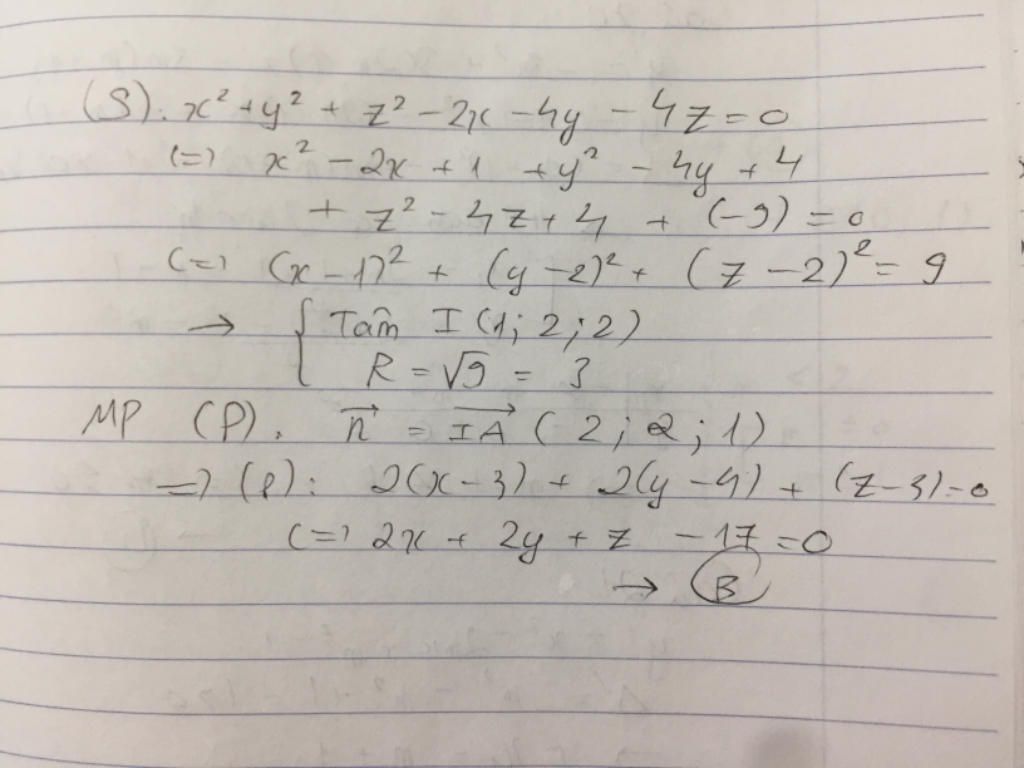 (S). x² + y² + z² - 2x - 4y - 4z = 0
(=) x² - 2x + 1 + y² - 4y + 4
+ z² - 4z + 4 + (-9) = 0
(=) (x - 1)² + (y - 2)² + (z - 2)² = 9
→ { Tâm I (1; 2; 2)
R = √9 = 3
MP (P). n⃗ = IA⃗ (2; 2; 1)
=) (P): 2(x - 3) + 2(y - 4) + (z - 3) = 0
(=) 2x + 2y + z - 17 = 0
→ B